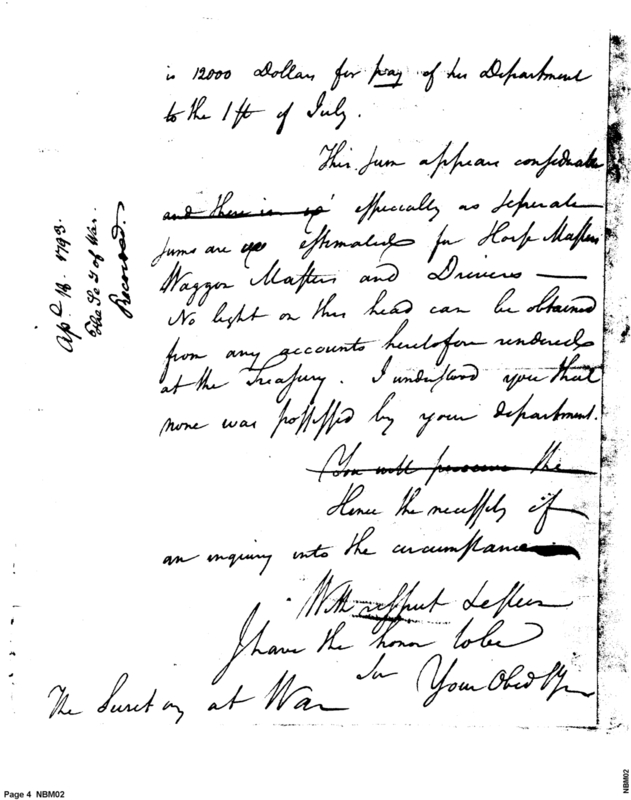 is 12000 Dollars for pay of his Department
to the 1st of July.
This sum appears considerable
and there is especially as seperate
sums are estimated for Horse Masters
Waggon Masters and Drivers —
No light on this head can be obtained
from any accounts heretofore rendered
at the Treasury. I understood you that
none was possessed by your department.
You will the
Hence the necessity of
an inquiry into the circumstance
With respect &
I have the honor to be
Sir Your Obed
The Secretary at War
Apl. 18. 1793.
The Se y of War.
Recorded.
Page 4 NBM02
NBM02